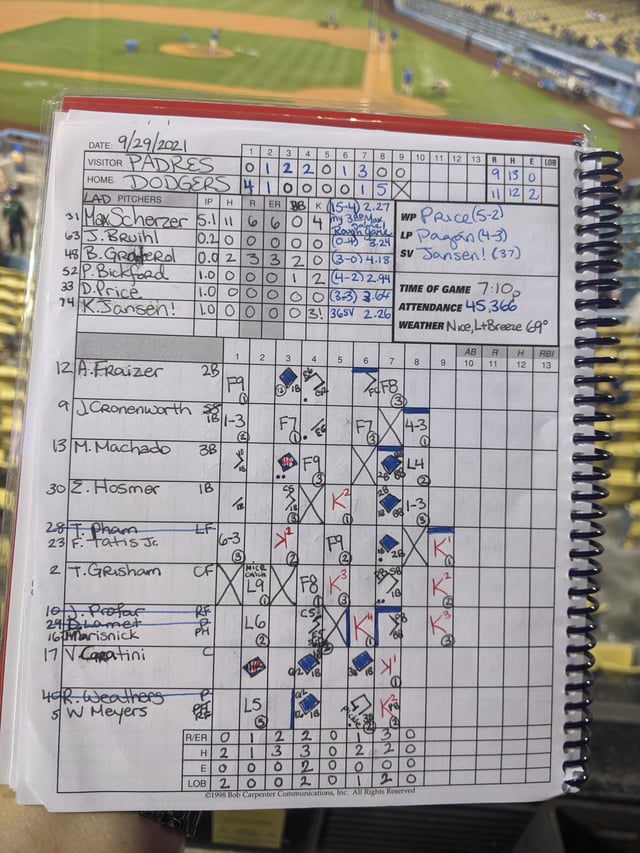 DATE: 9/29/2021
1 2 3 4 5 6 7 8 9 10 11 12 13 R H E LOB
VISITOR PADRES 0 1 2 2 0 1 3 0 0 9 13 0
HOME: DODGERS 4 1 0 0 0 0 1 5 X 11 12 2
LAD PITCHERS IP H R ER BB K (15-4) 2.27
31 Max Scherzer 5.1 11 6 6 0 4 my 3rd Max game! Rough game
63 J. Bruihl 0.2 0 0 0 0 0 (0-4) 3.24
48 B. Graterol 0.0 2 3 3 2 0 (3-0) 4.18
52 P. Bickford 1.0 0 0 0 1 2 (4-2) 2.94
33 D. Price 1.0 0 0 0 0 0
74 K. Jansen! 1.0 0 0 0 0 3! 36SV 2.26
WP Price (5-2)
LP Pagán (4-3)
SV Jansen! (37)
TIME OF GAME 7:10p
ATTENDANCE 45,366
WEATHER Nice, Lt Breeze 69°
1 2 3 4 5 6 7 8 9 AB 10 R 11 H 12 RBI 13
12 A. Fraizer 2B F9 F8
9 J. Cronenworth SS 1B 1-3 F7 F7 4-3
13 M. Machado 3B F9 L4
30 E. Hosmer 1B K2 1-3
28 T. Pham LF
23 F. Tatis Jr. 6-3 K2 F9 K1
2 T. Grisham CF NICE CATCH L9 F8 K3 K2
10 J. Profar RF
29 D. Lamet P
16 Marisnick PH L6 K4 K3
17 V. Caratini C K1
40 R. Weathers P
5 W Meyers L5 K2
R/ER 0 1 2 2 0 1 3 0
H 2 1 3 3 0 2 2 0
E 0 0 0 2 0 0 0 0
LOB 2 0 0 2 0 1 2 0
©1998 Bob Carpenter Communications, Inc. All Rights Reserved